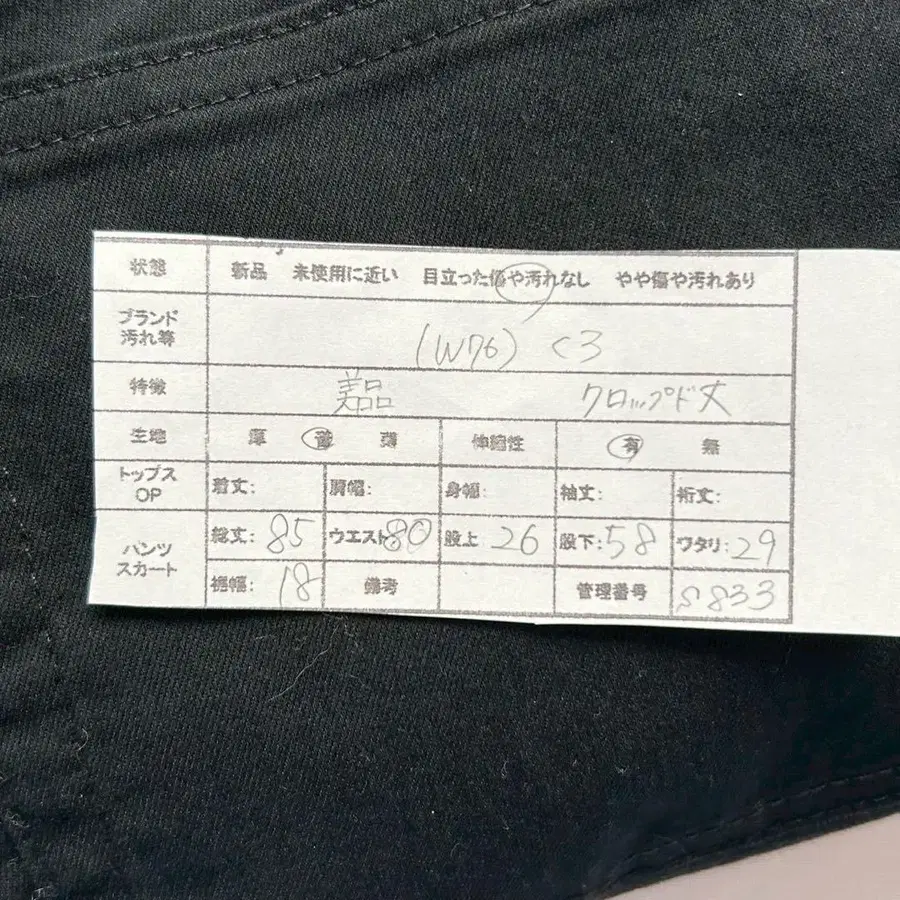 状態 新品 未使用に近い 目立った傷や汚れなし やや傷や汚れあり
ブランド
汚れ等 (W76) <3
特徴 美品 クロップド丈
生地 厚 普 薄 伸縮性 有 無
トップス
OP 着丈: 肩幅: 身幅: 袖丈: 裄丈:
パンツ
スカート 総丈: 85 ウエスト 80 股上 26 股下: 58 ワタリ: 29
裾幅: 18 備考 管理番号 S833